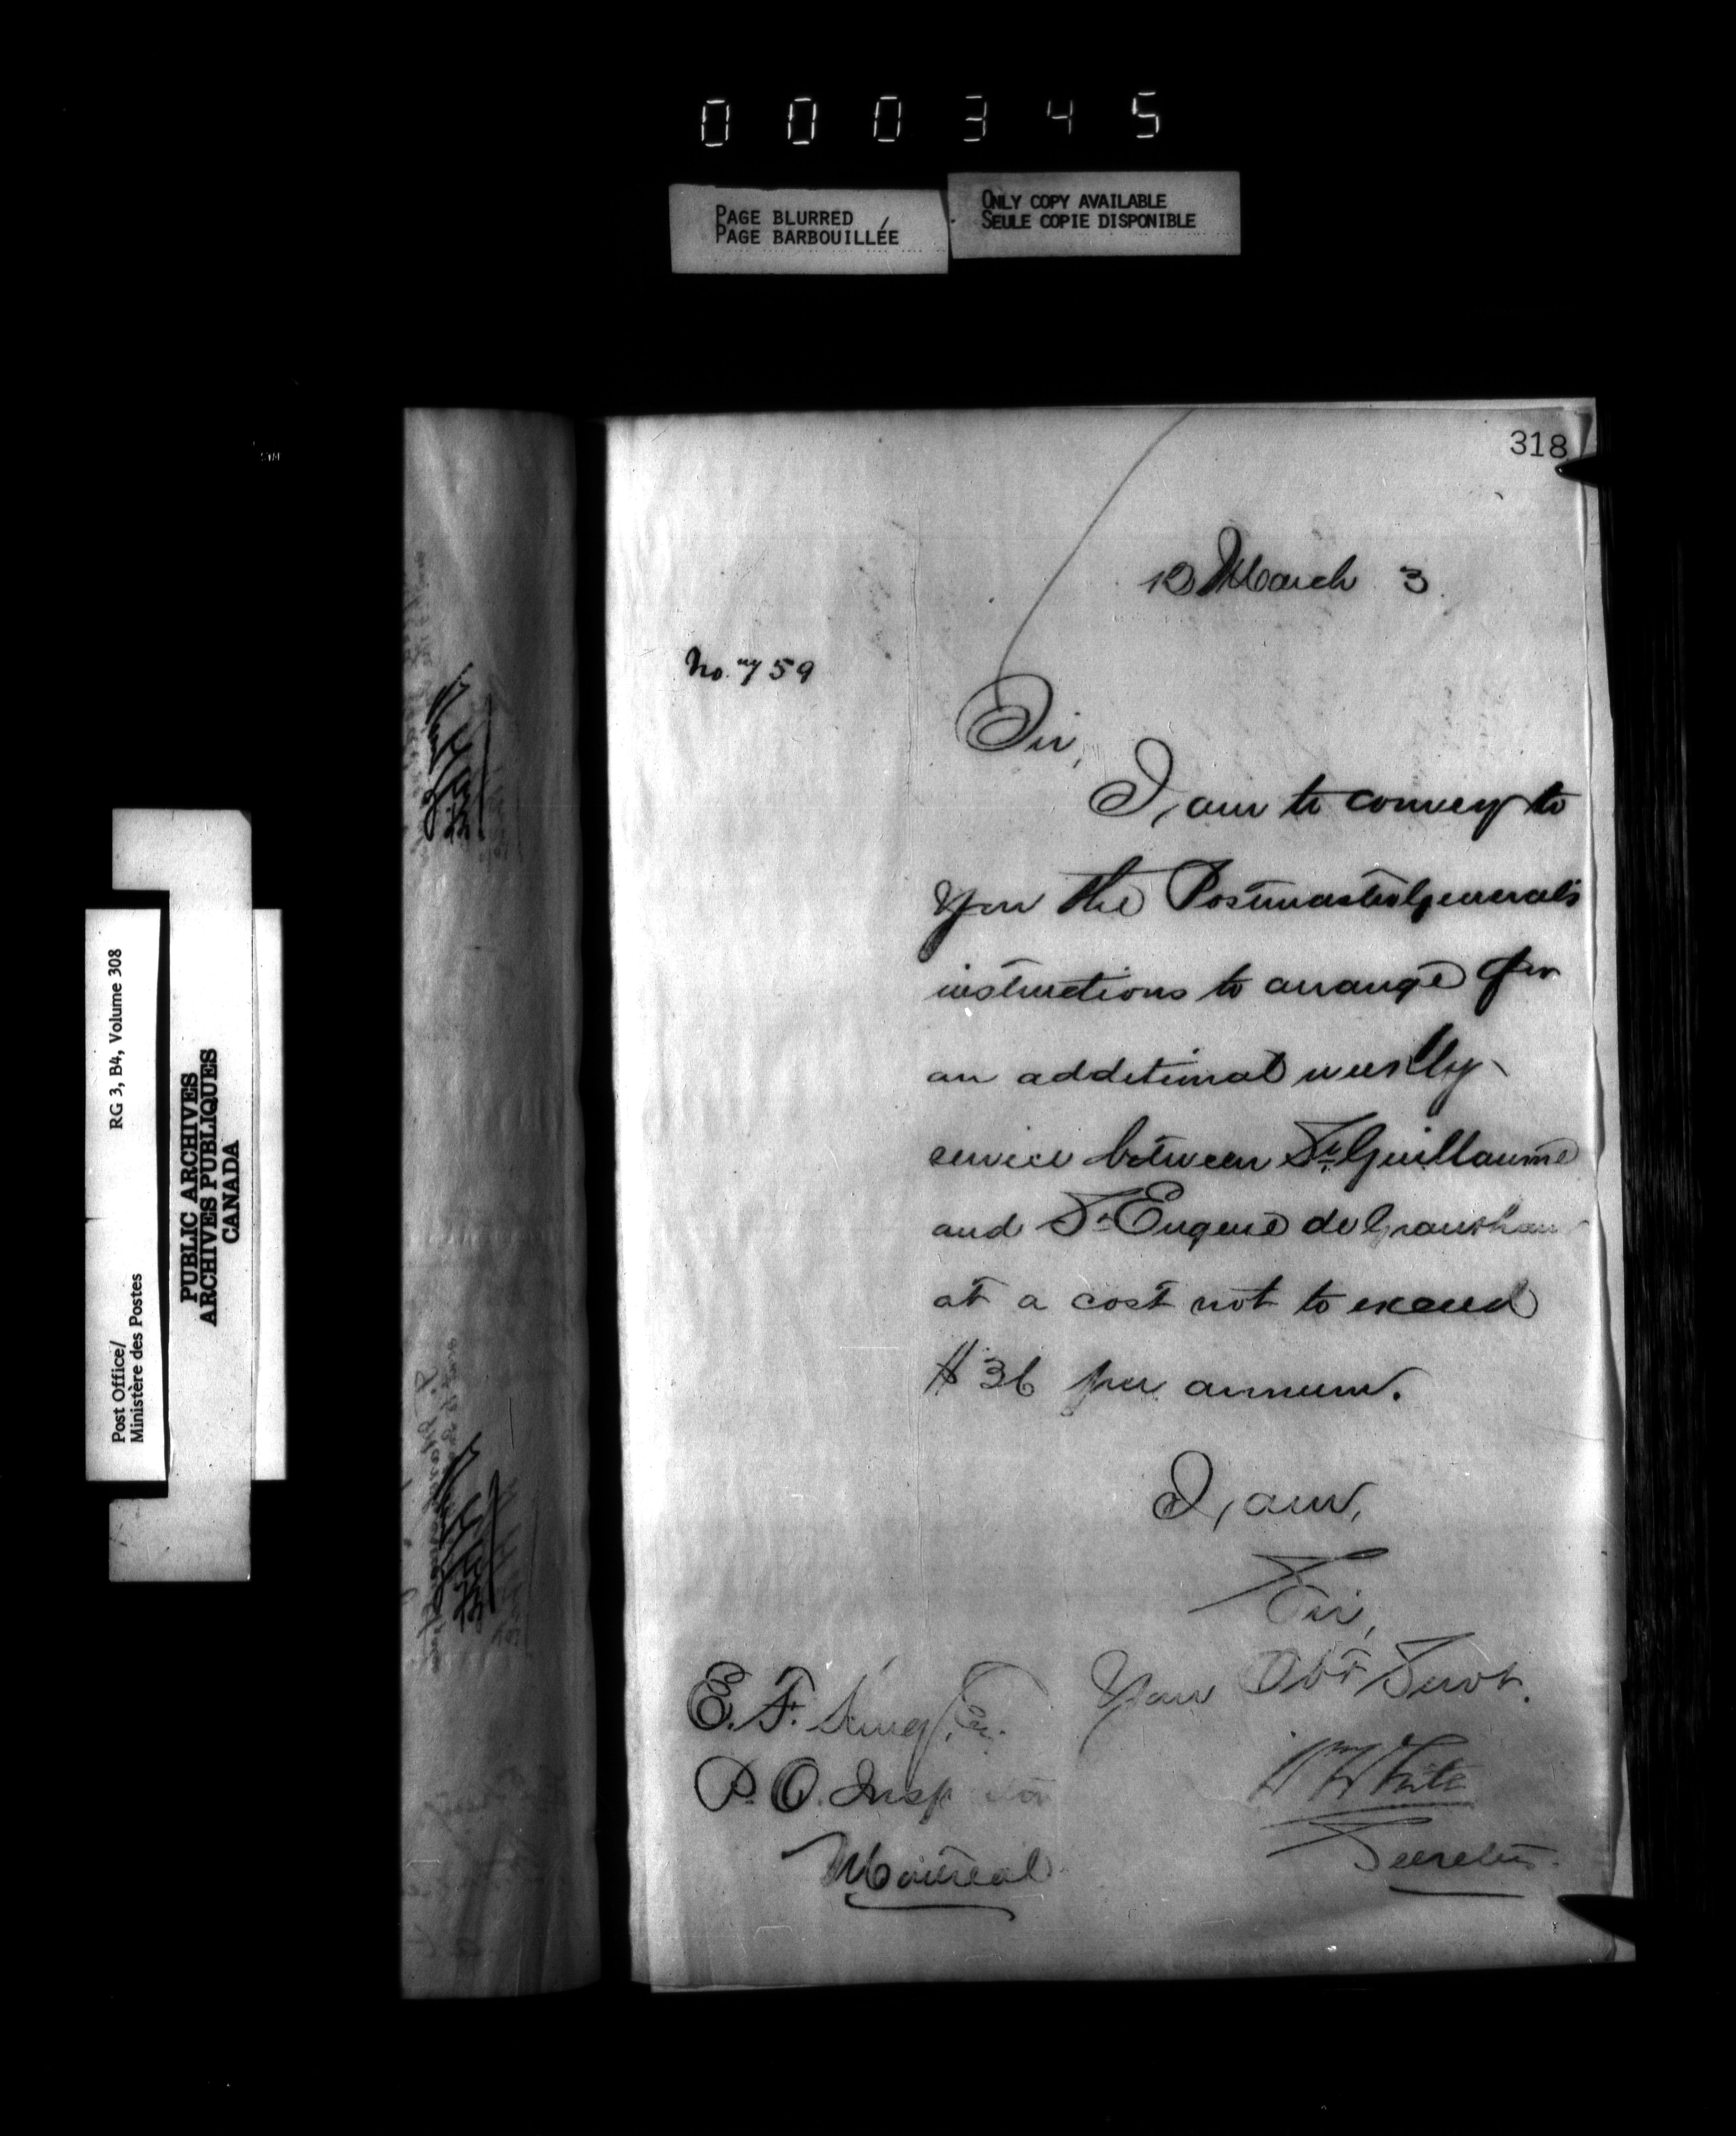 000345
PAGE BLURRED
PAGE BARBOUILLÉE
ONLY COPY AVAILABLE
SEULE COPIE DISPONIBLE
318
13 March 3
No. 759
Sir,
I am to convey to
you the Postmaster Generals
instructions to arrange for
an additional weekly
service between St. Guillaume
and St Eugene de Grantham
at a cost not to exceed
$36 per annum.
I am,
Sir,
Your Obt Servt.
E. F. King, Esq.
P. O. Inspector
Montreal
Wm White
Secretary
Post Office/
Ministère des Postes
RG 3, B4, Volume 308
PUBLIC ARCHIVES
ARCHIVES PUBLIQUES
CANADA